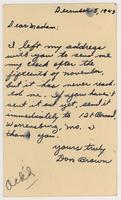 December 5, 1943
Dear Madam:
I left my address
with you to send me
my check after the
fifteenth of november,
but it has never reach
ed me. If you haven't
sent it out yet, send it
immediately to 121 Broad,
Warrensburg, Mo. I
thank you.
Yours truly
Don Brown
ack'd